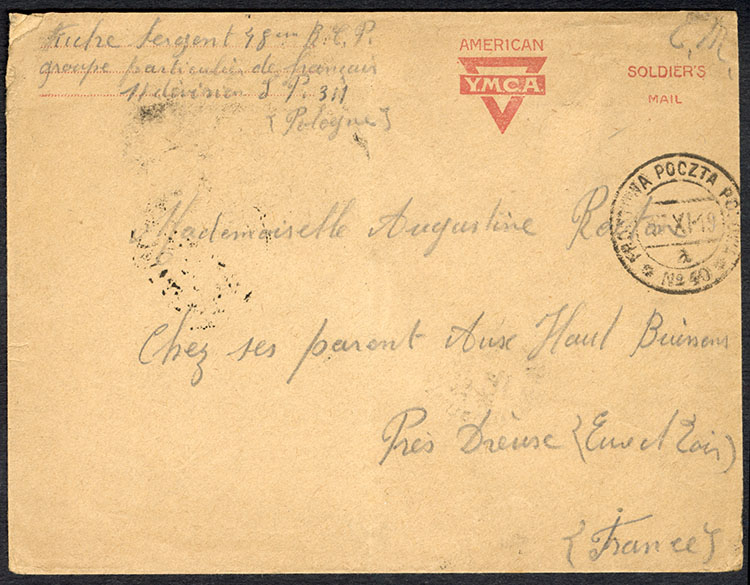 Sergent 48ème B.C.P.
groupe particulier de français
11 division S P. 311
(Pologne)
AMERICAN
Y.M.C.A.
SOLDIER'S
MAIL
POCZTA
XI 19
a
№ 40
Mademoiselle Augustine
Chez ses parent Aux Haut Buissons
Près Dreuse (Eure et Loir)
(France)